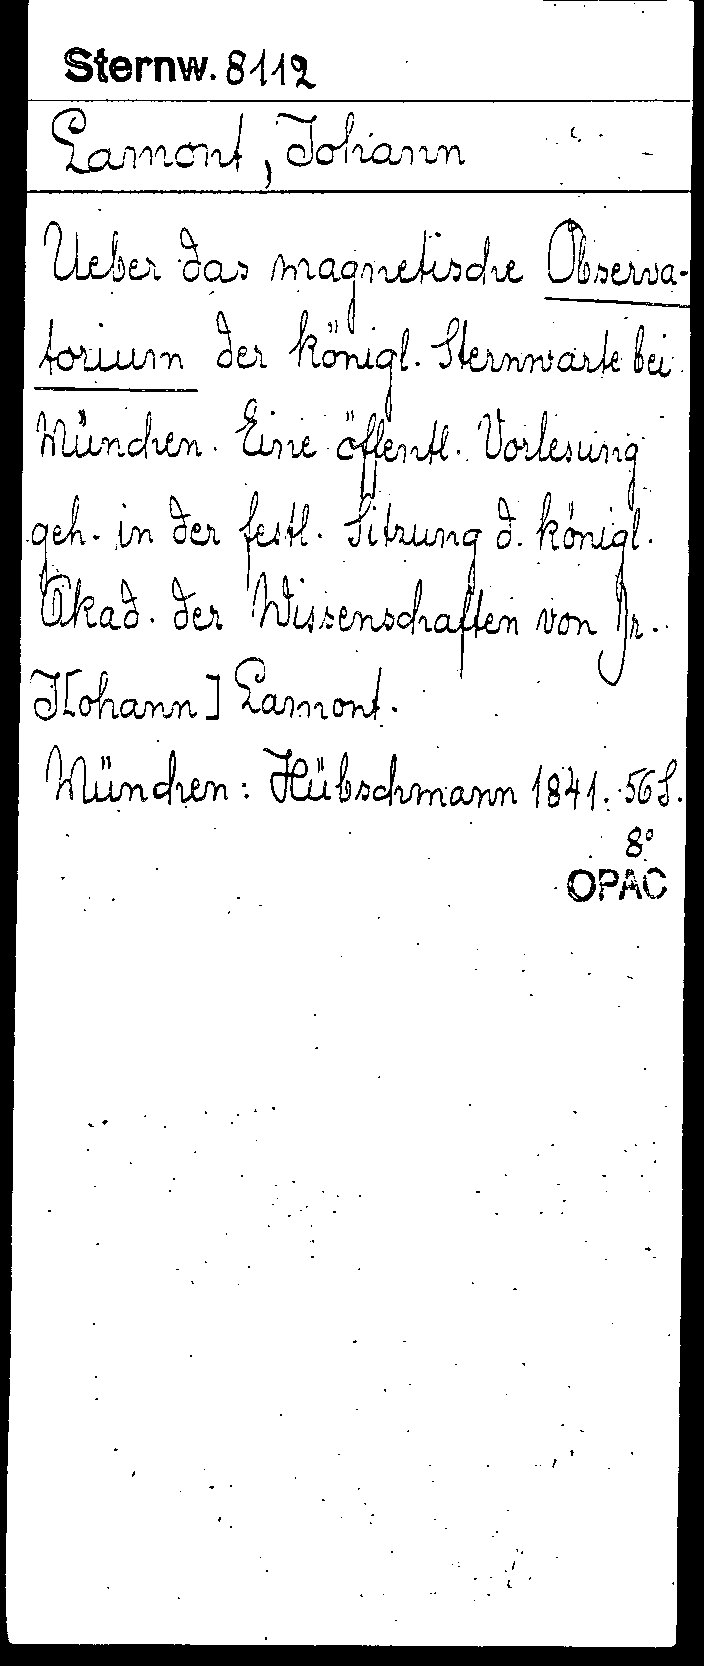 Sternw. 8112
Lamont, Johann
Ueber das magnetische Observa-
torium der königl. Sternwarte bei
München. Eine öffentl. Vorlesung
geh. in der festl. Sitzung d. königl.
Akad. der Wissenschaften von Dr.
J[ohann] Lamont.
München: Hübschmann 1841. 56 S.
8°
OPAC